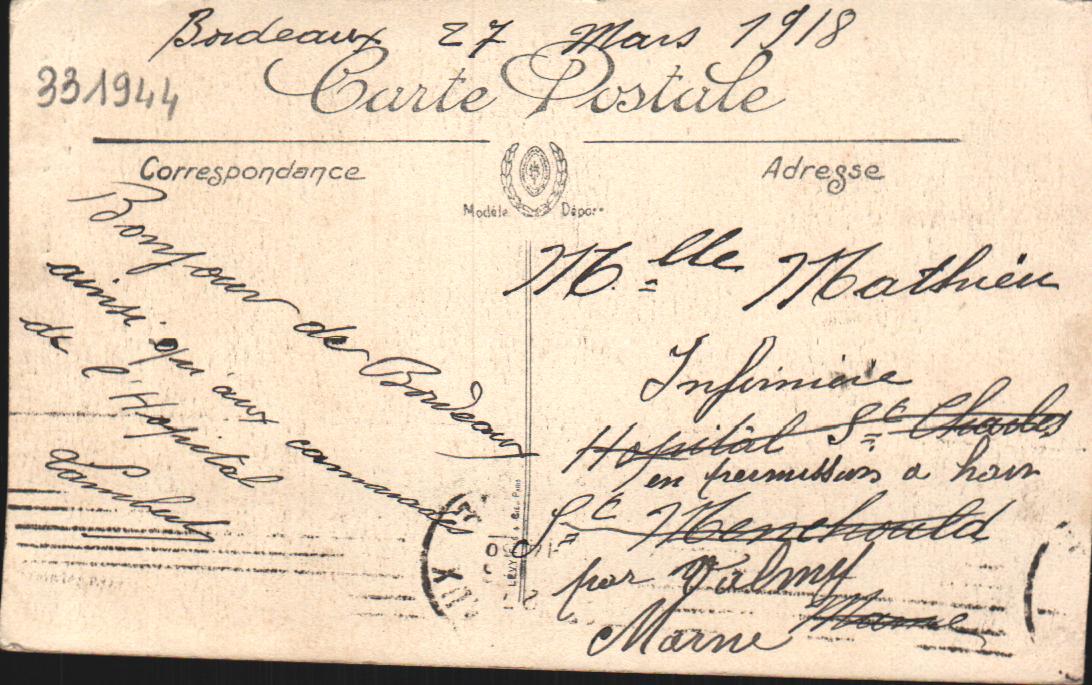 Bordeaux 27 Mars 1918
331944
Carte Postale
Correspondance
Adresse
Modèle Déposé
Bonjour de Bordeaux
ainsi qu'aux camarades
de l'Hopital
Mlle Mathieu
Infirmière
Hopitâl St Charles
en permission a
Ste Menehould
par Valmy
Marne Marne
LEVY